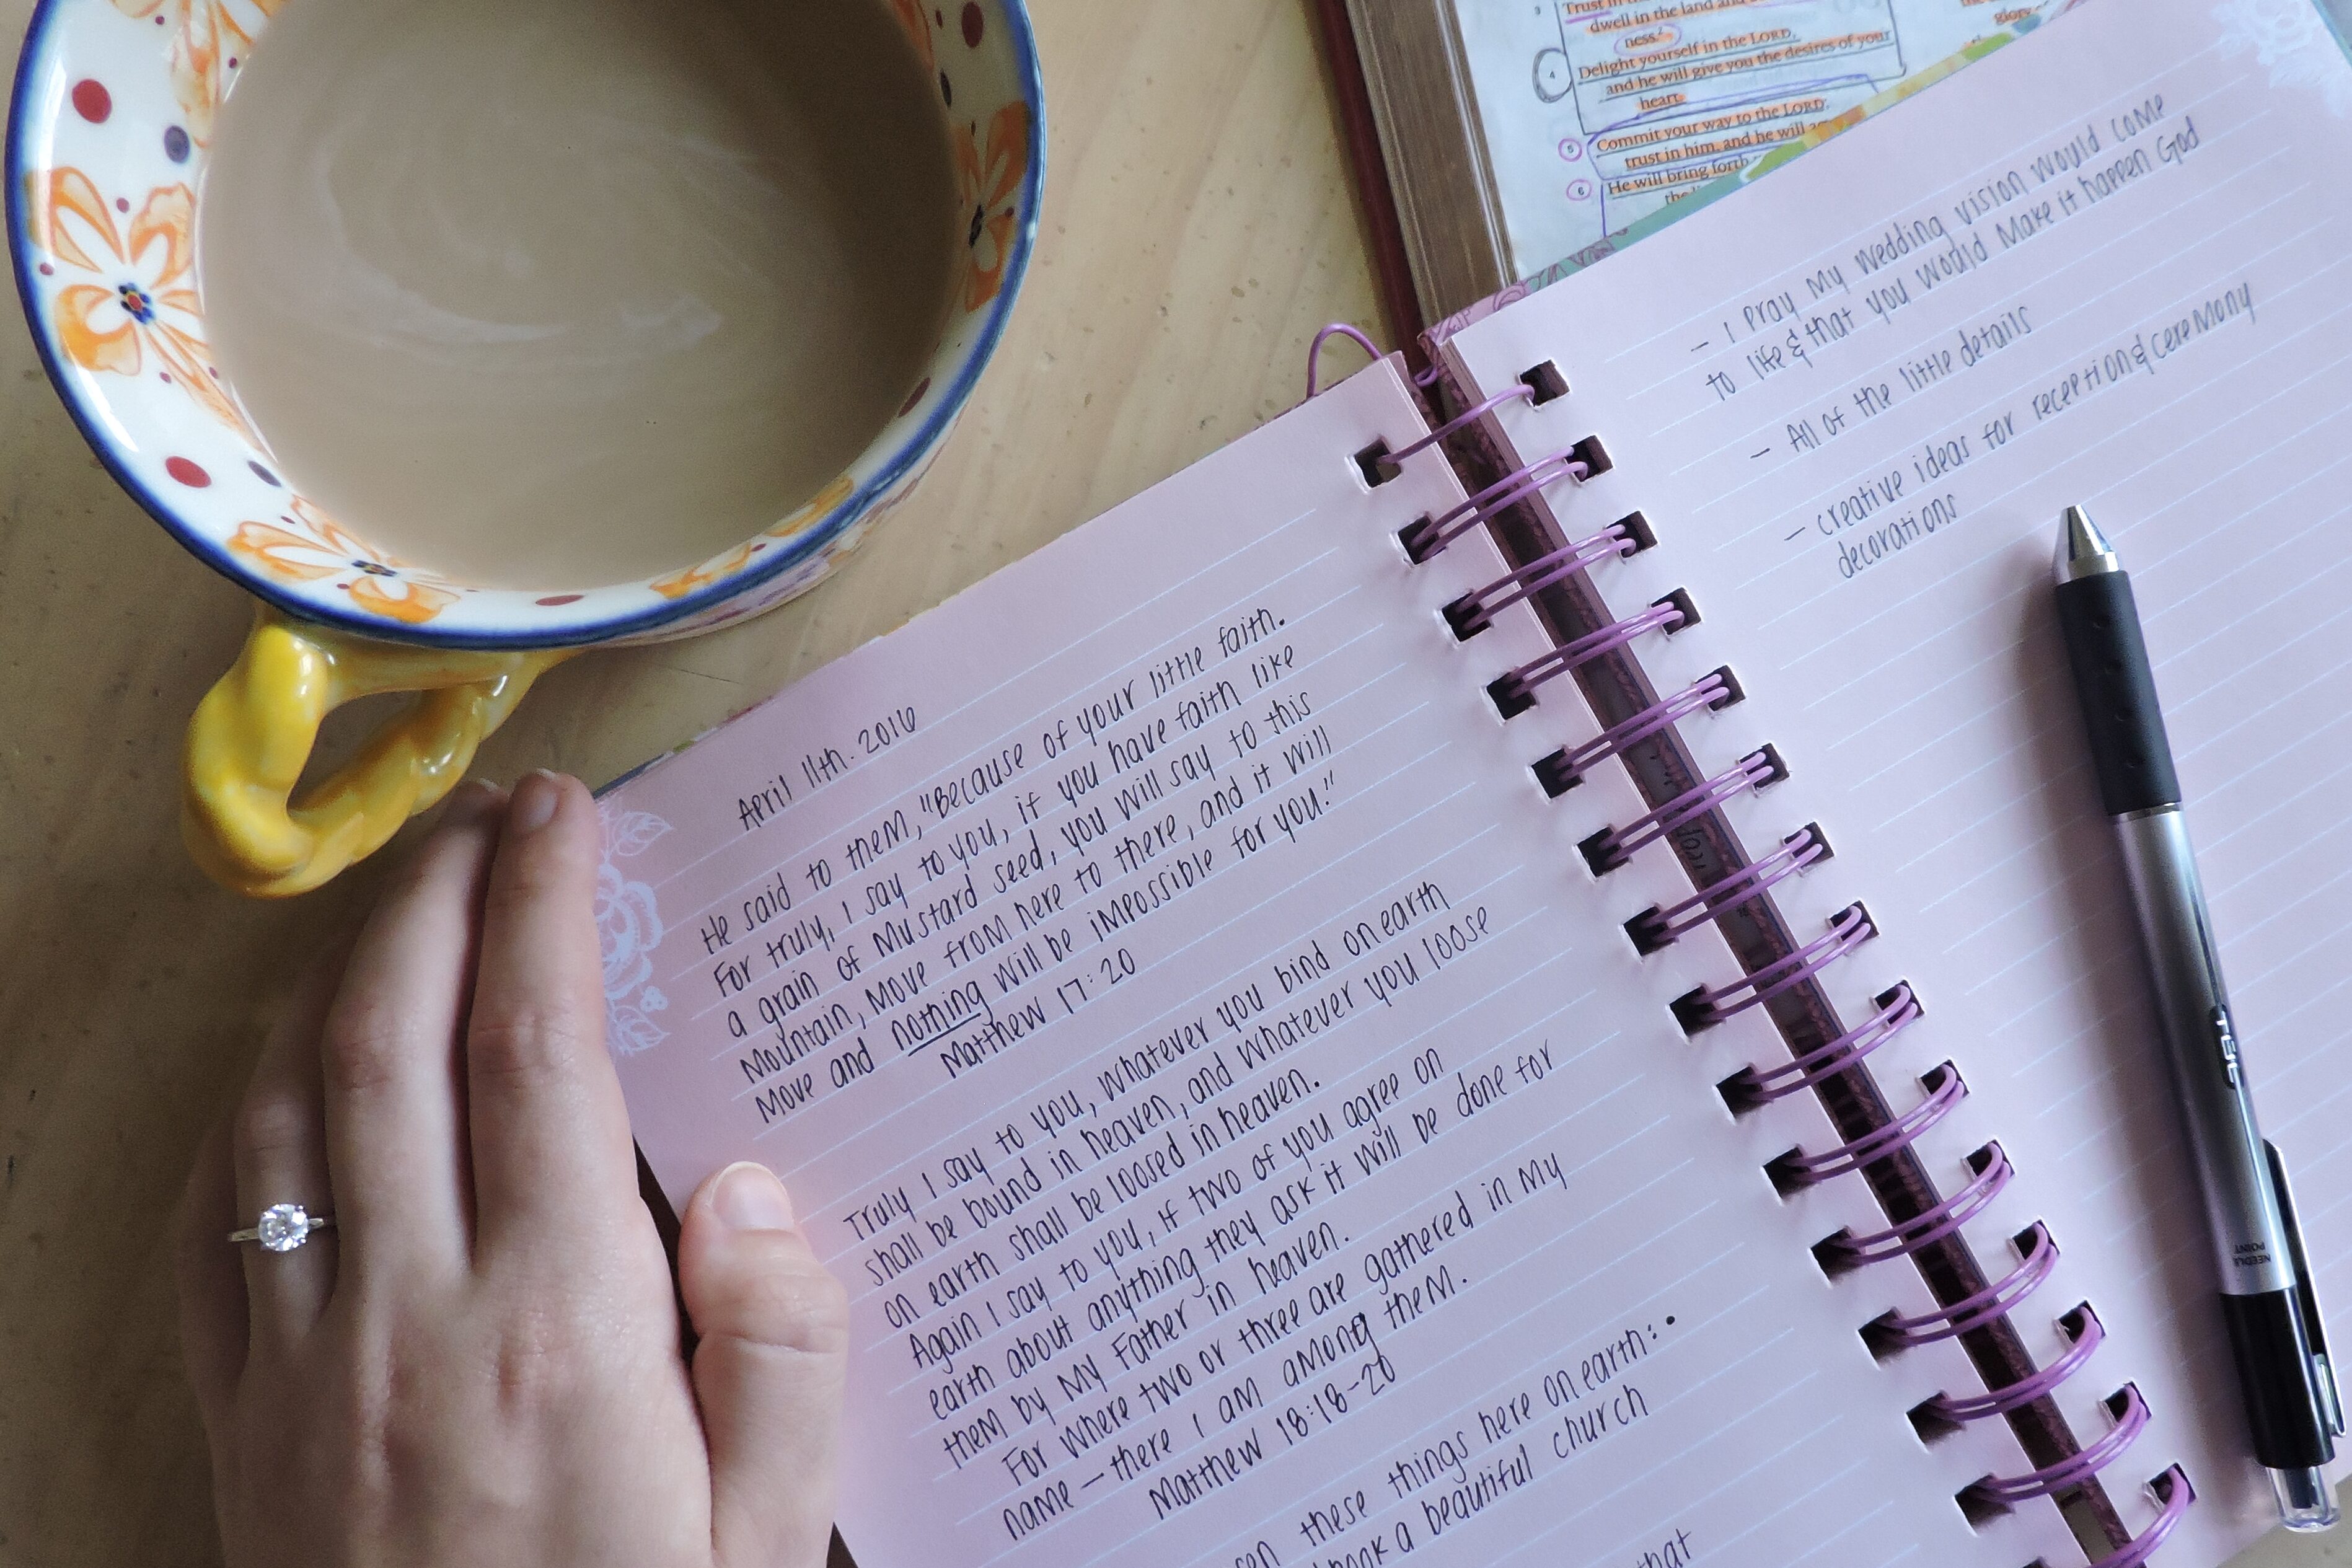 Trust in
dwell in the land and
ness.²
4 Delight yourself in the LORD,
and he will give you the desires of your
heart.
5 Commit your way to the LORD;
trust in him, and he will
6 He will bring forth
glory
April 11th. 2016
He said to them, "Because of your little faith.
For truly, I say to you, if you have faith like
a grain of Mustard seed, you will say to this
Mountain, Move from here to there, and it will
Move and nothing will be impossible for you."
Matthew 17:20
Truly I say to you, whatever you bind on earth
shall be bound in heaven, and whatever you loose
on earth shall be loosed in heaven.
Again I say to you, if two of you agree on
earth about anything they ask it will be done for
them by My Father in heaven.
For where two or three are gathered in My
name — there I am among them.
Matthew 18:18-20
these things here on earth:
a beautiful church
that
- I pray My wedding vision would come
to life & that you would Make it happen God
- All of the little details
- creative ideas for reception & ceremony
decorations
NEEDLE
POINT